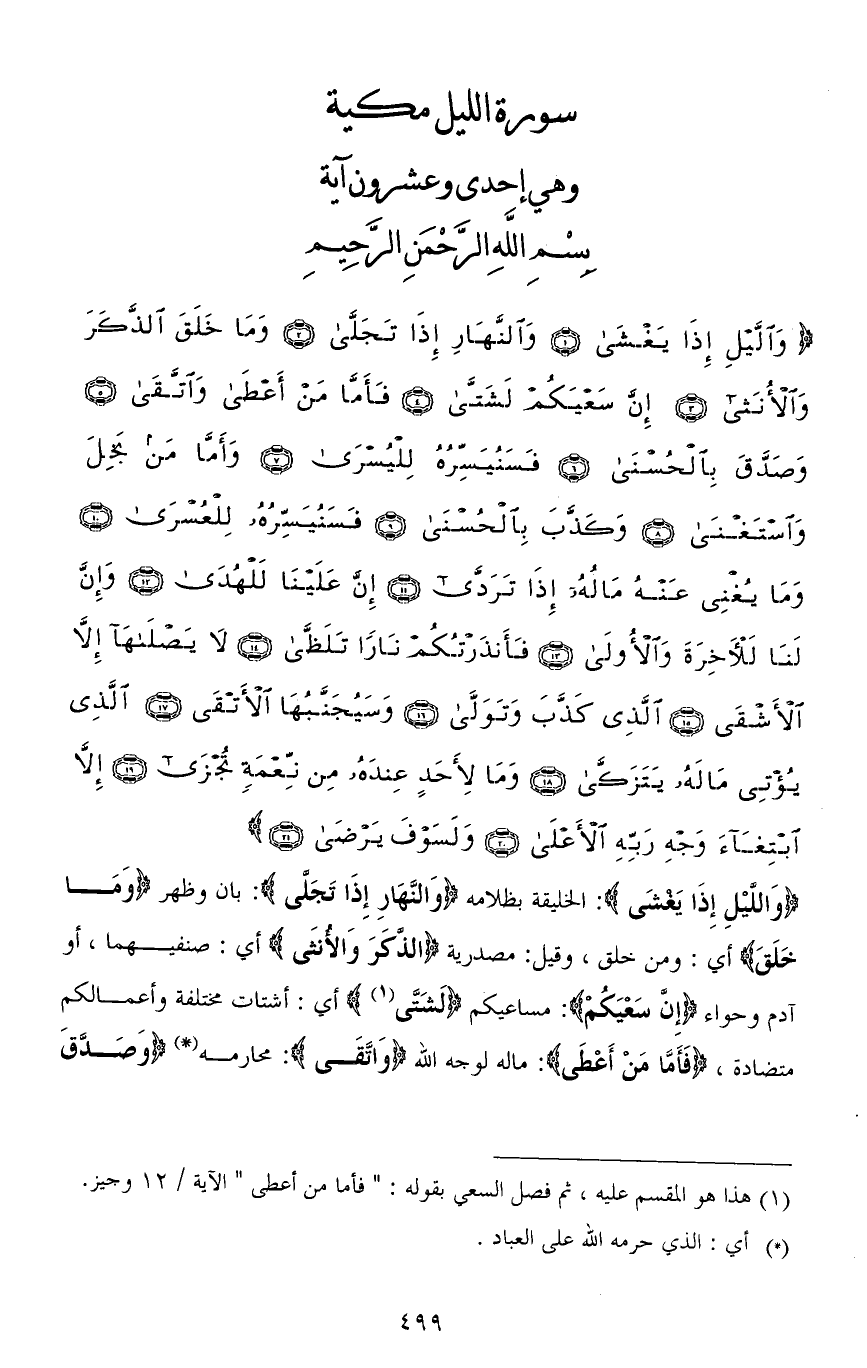 سورة الليل مكية
وهي إحدى وعشرون آية
بِسْمِ اللَّهِ الرَّحْمَنِ الرَّحِيمِ
﴿ وَٱلَّيْلِ إِذَا يَغْشَىٰ ﴿١﴾ وَٱلنَّهَارِ إِذَا تَجَلَّىٰ ﴿٢﴾ وَمَا خَلَقَ ٱلذَّكَرَ
وَٱلْأُنثَىٰٓ ﴿٣﴾ إِنَّ سَعْيَكُمْ لَشَتَّىٰ ﴿٤﴾ فَأَمَّا مَنْ أَعْطَىٰ وَٱتَّقَىٰ ﴿٥﴾
وَصَدَّقَ بِٱلْحُسْنَىٰ ﴿٦﴾ فَسَنُيَسِّرُهُۥ لِلْيُسْرَىٰ ﴿٧﴾ وَأَمَّا مَنۢ بَخِلَ
وَٱسْتَغْنَىٰ ﴿٨﴾ وَكَذَّبَ بِٱلْحُسْنَىٰ ﴿٩﴾ فَسَنُيَسِّرُهُۥ لِلْعُسْرَىٰ ﴿١٠﴾
وَمَا يُغْنِى عَنْهُ مَالُهُۥٓ إِذَا تَرَدَّىٰٓ ﴿١١﴾ إِنَّ عَلَيْنَا لَلْهُدَىٰ ﴿١٢﴾ وَإِنَّ
لَنَا لَلْأَخِرَةَ وَٱلْأُولَىٰ ﴿١٣﴾ فَأَنذَرْتُكُمْ نَارًا تَلَظَّىٰ ﴿١٤﴾ لَا يَصْلَىٰهَآ إِلَّا
ٱلْأَشْقَى ﴿١٥﴾ ٱلَّذِى كَذَّبَ وَتَوَلَّىٰ ﴿١٦﴾ وَسَيُجَنَّبُهَا ٱلْأَتْقَى ﴿١٧﴾ ٱلَّذِى
يُؤْتِى مَالَهُۥ يَتَزَكَّىٰ ﴿١٨﴾ وَمَا لِأَحَدٍ عِندَهُۥ مِن نِّعْمَةٍ تُجْزَىٰٓ ﴿١٩﴾ إِلَّا
ٱبْتِغَآءَ وَجْهِ رَبِّهِ ٱلْأَعْلَىٰ ﴿٢٠﴾ وَلَسَوْفَ يَرْضَىٰ ﴿٢١﴾ ﴾
﴿وَاللَّيْلِ إِذَا يَغْشَى ﴾: الخليقة بظلامه ﴿وَالنَّهَارِ إِذَا تَجَلَّى ﴾: بان وظهر ﴿وَمَا
خَلَقَ﴾ أي : ومن خلق ، وقيل: مصدرية ﴿الذَّكَرَ وَالأُنثَى ﴾ أي : صنفيهما ، أو
آدم وحواء ﴿إِنَّ سَعْيَكُمْ﴾: مساعيكم ﴿لَشَتَّى(١) ﴾ أي : أشتات مختلفة وأعمالكم
متضادة ، ﴿فَأَمَّا مَنْ أَعْطَى﴾: ماله لوجه الله ﴿وَاتَّقَى ﴾: محارمه(*) ﴿وَصَدَّقَ
(١) هذا هو المقسم عليه ، ثم فصل السعي بقوله : " فأما من أعطى " الآية / ١٢ وجيز.
(*) أي : الذي حرمه الله على العباد .
٤٩٩